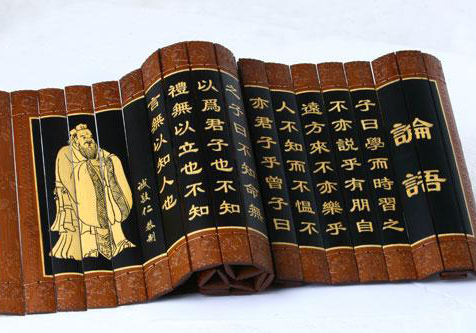 論語
子曰學而時習之
不亦説乎有朋自
遠方來不亦樂乎
人不知而不愠不
亦君子乎曾子曰
之子曰不知命無
以爲君子也不知
禮無以立也不知
言無以知人也